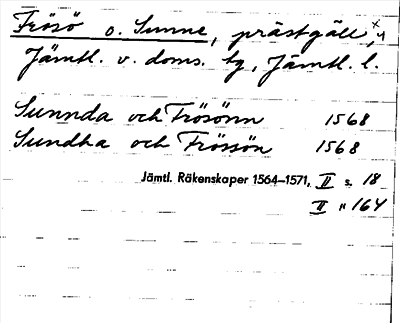 Frösö o. Sunne, prästgäll,
Jämtl. v. doms. tg, Jämtl. l.
Sunnda och Frösönn 1568
Sundha och Frössön 1568
Jämtl. Räkenskaper 1564–1571, II s. 18
II " 164